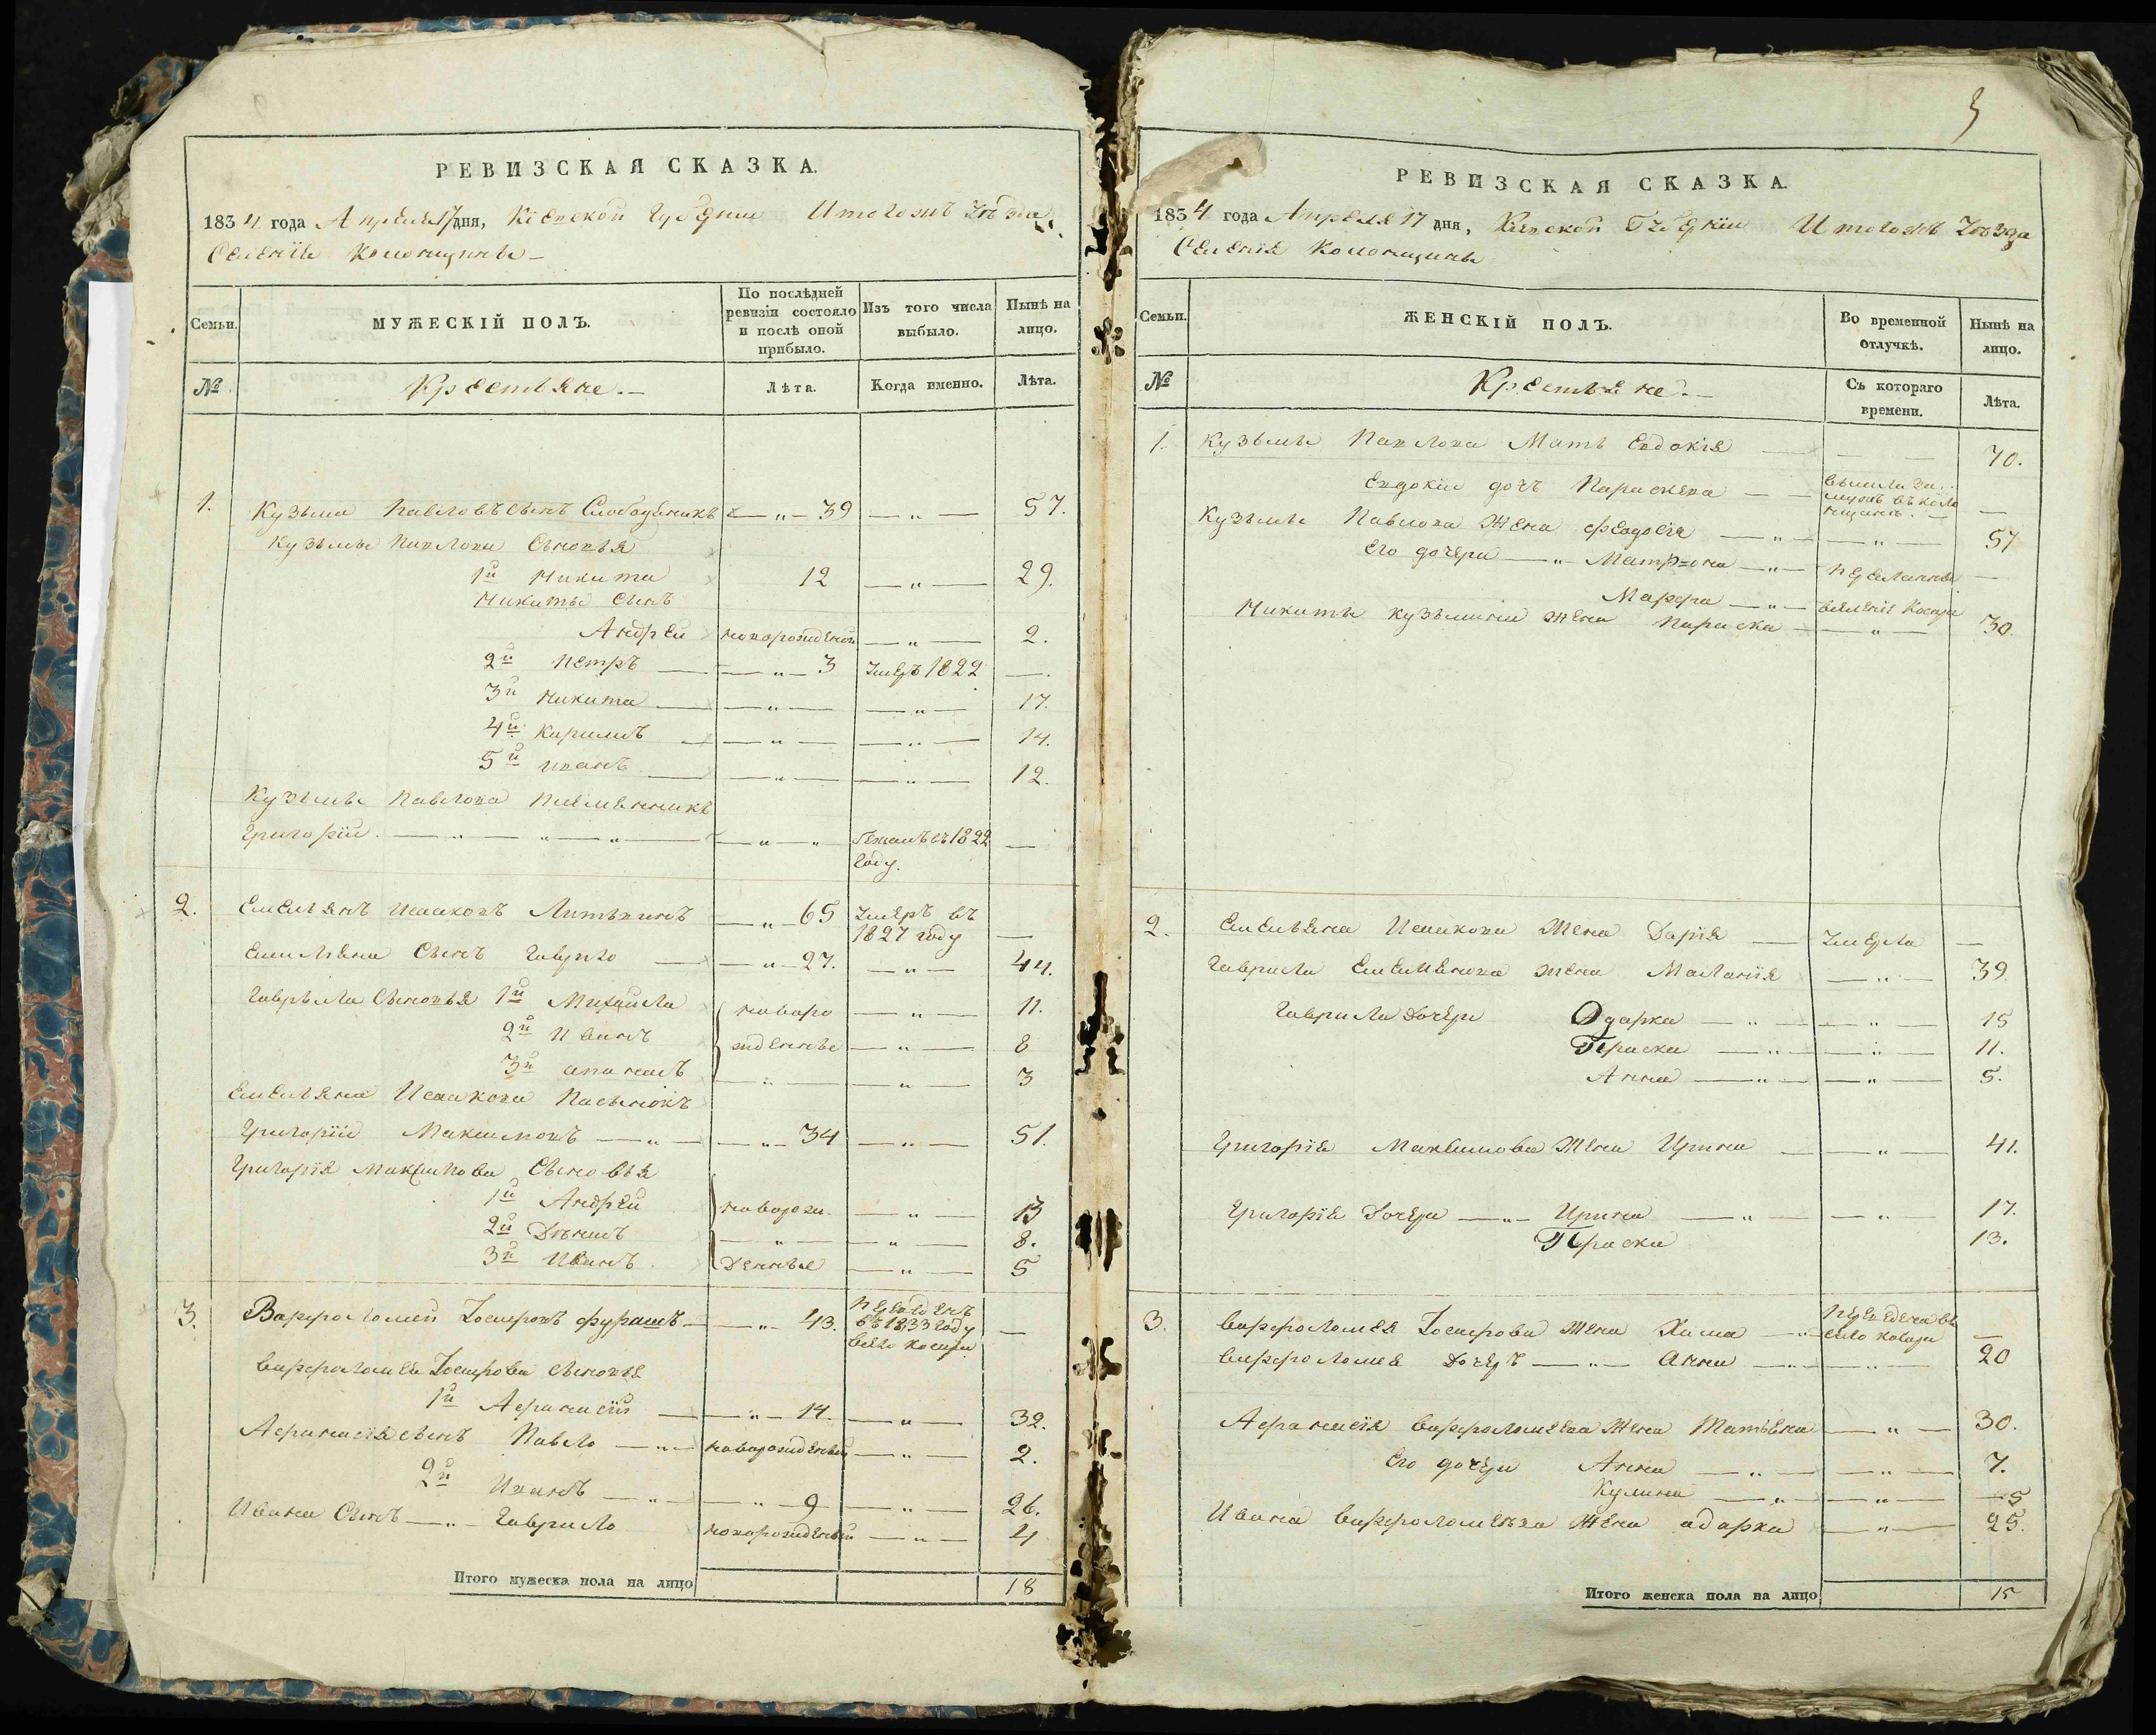 РЕВИЗСКАЯ СКАЗКА.
1834 года Апреля 17 дня, Кіевской Губерніи Уезда
Селенія Колонщины
Семьи.
МУЖЕСКІЙ ПОЛЪ.
По послѣдней ревизіи состояло и послѣ оной прибыло.
Изъ того числа выбыло.
Нынѣ на лицо.
№
Крестьяне.
Лѣта.
Когда именно.
Лѣта.
1. Кузьма Павловъ сынъ — „ — 39 — „ — 57.
Кузьмы Павлова Сыновья
1й Никита 12 — „ — 29.
Никиты Сынъ
Андрей новорожденой — „ — 2.
2й Петръ — „ — 3 Умеръ 1822 —
3й Никита — „ — — „ — 17.
4й Кирилъ — „ — — „ — 14.
5й Иванъ — „ — — „ — 12.
Кузьмы Павлова Племянникъ
Григорій — „ — „ — „ — — „ — „ Бежалъ въ 1822
году. —
2. Емельянъ Исаковъ Литвинъ — „ — 65 Умеръ въ
1827 году —
Емельяна Сынъ Гаврило — „ — 27. — „ — 44.
Гаврила Сыновья 1й Михайла новоро — „ — 11.
2й Иванъ жденные — „ — 8
3й — „ — — „ — 3
Емельяна Исакова Пасынокъ
Григорій Максимовъ — „ — — „ — 34 — „ — 51.
Григорія Максимова Сыновья
1й Андрей новорож — „ — 13
2й — „ — — „ — 8.
3й Иванъ денные — „ — 5
3. Варфоломей Іосифовъ — „ — 43. переведенъ
въ 1833 году
—
Варфоломея Іосифова сыновья
1й Афанасій — „ — 14. — „ — 32.
Афанасія сынъ Павло — „ — новорожденый — „ — 2.
2й Иванъ — „ — — „ — 9 — „ — 26.
Ивана Сынъ — „ — Гаврило новорожденый — „ — 4
Итого мужеска пола на лицо 18
РЕВИЗСКАЯ СКАЗКА.
1834 года Апреля 17 дня, Кіевской Губерніи Уезда
Селенія Колонщины
Семьи.
ЖЕНСКІЙ ПОЛЪ.
Во временной отлучкѣ.
Нынѣ на лицо.
№
Крестьяне.
Съ котораго времени.
Лѣта.
1. Кузьмы Павлова Мать Евдокія — — 70.
Евдокіи дочь Параскева — — вышла за
мужъ въ Коло
нщине. —
Кузьмы Павлова Жена Феодосія — „ — — „ — 57
Его дочери — „ — Матрона — „ — —
Марфа — „ —
Никиты Кузьмина жена Параска — „ — 30
2. Емельяна Исакова Жена Дарія — Умерла —
Гаврила Емельянова жена Маланія — „ — 39.
Гаврила Дочери Одарка — „ — — „ — 15
Параска — „ — — „ — 11.
Анна — „ — — „ — 5.
Григорія Максимова Жена Ирина — — „ — 41.
Григорія Дочери — „ — Ирина — „ — — „ — 17.
Параска 13.
3. Варфоломея Іосифова Жена Хима — „ — переведена въ
село —
Варфоломея Дочерь — „ — Анна — „ — — „ — 20
Афанасія Варфоломеева Жена Татьяна — „ — 30.
Его дочери Анна — „ — — „ — 7.
Кулина — „ — — „ — 5
Ивана Варфоломеева Жена одарка — „ — 25.
Итого женска пола на лицо 15